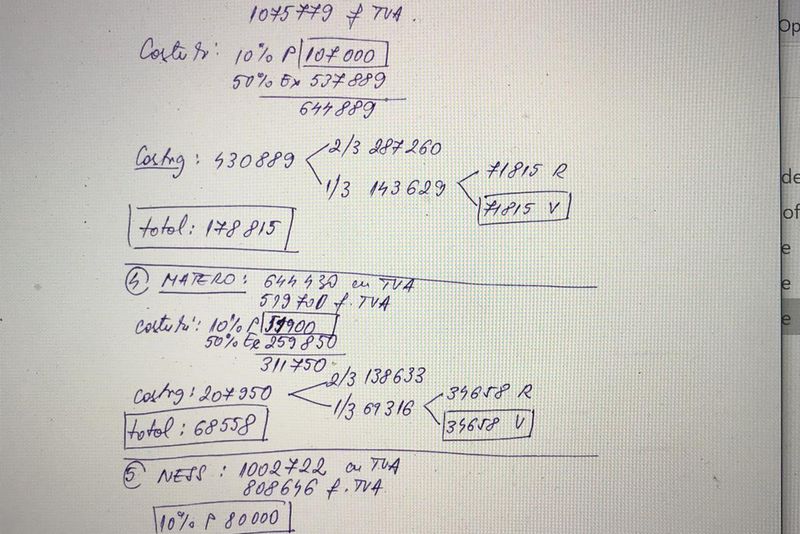 1075779 f TVA
Costuri: 10% P 107000
50% Ex 537889
644889
Castig: 430889
2/3 287260
1/3 143629
71815 R
71815 V
total: 178815
4 MATERO: 644430 cu TVA
519700 f. TVA
costuri: 10% P 51900
50% Ex 259850
311750
castig: 207950
2/3 138633
1/3 69316
34658 R
34658 V
total: 68558
5 NESS: 1002722 cu TVA
808646 f. TVA
10% P 80000
Op
de
of
e
e
e